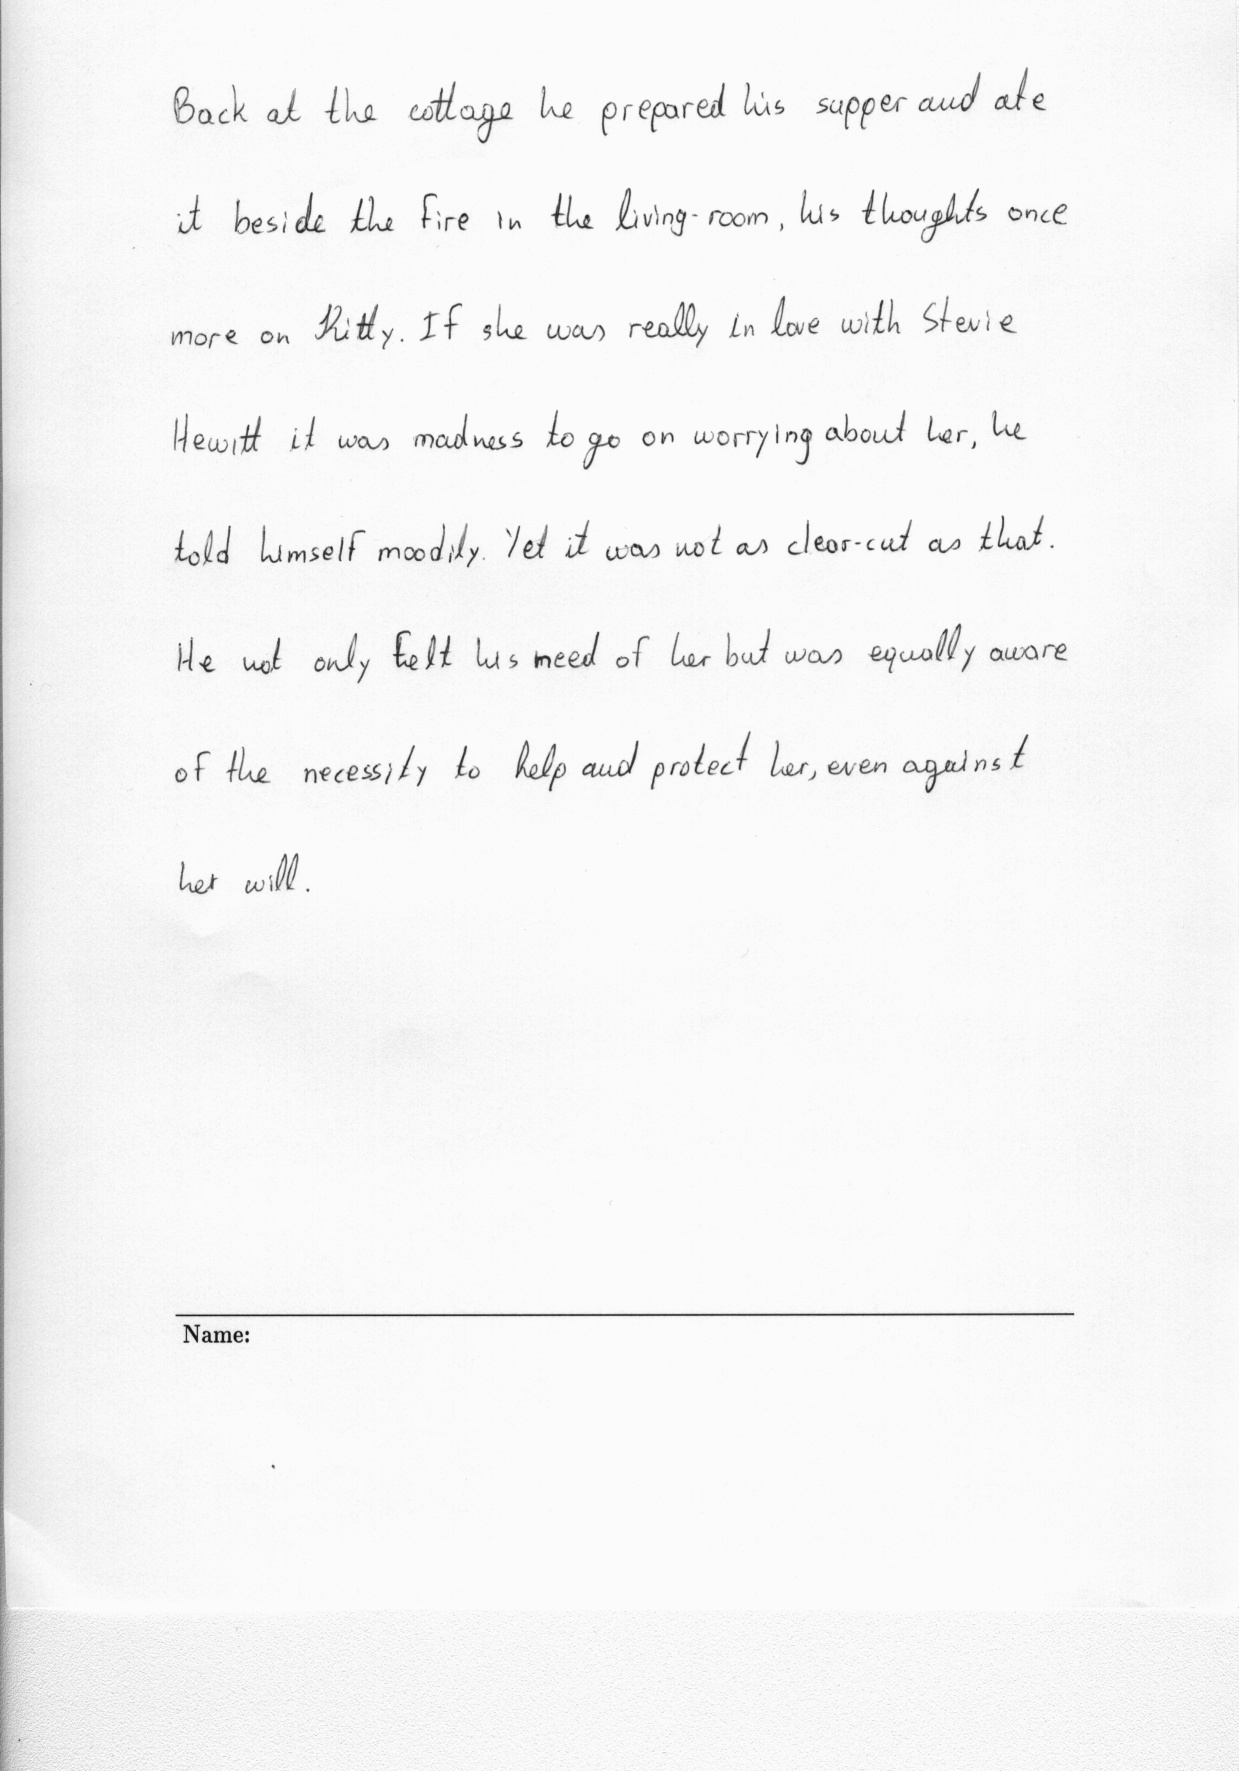 Back at the cottage he prepared his supper and ate
it beside the fire in the living-room, his thoughts once
more on Kitty. If she was really in love with Stevie
Hewitt it was madness to go on worrying about her, he
told himself moodily. Yet it was not as clear-cut as that.
He not only felt his need of her but was equally aware
of the necessity to help and protect her, even against
her will.
Name: